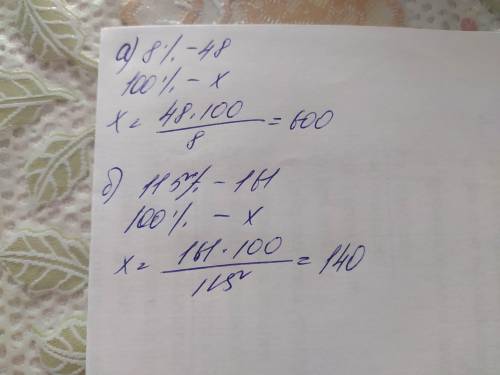 а) 8% - 48
100% - х
х = 48.100 / 8 = 600
б) 115% - 161
100% - х
х = 161.100 / 115 = 140